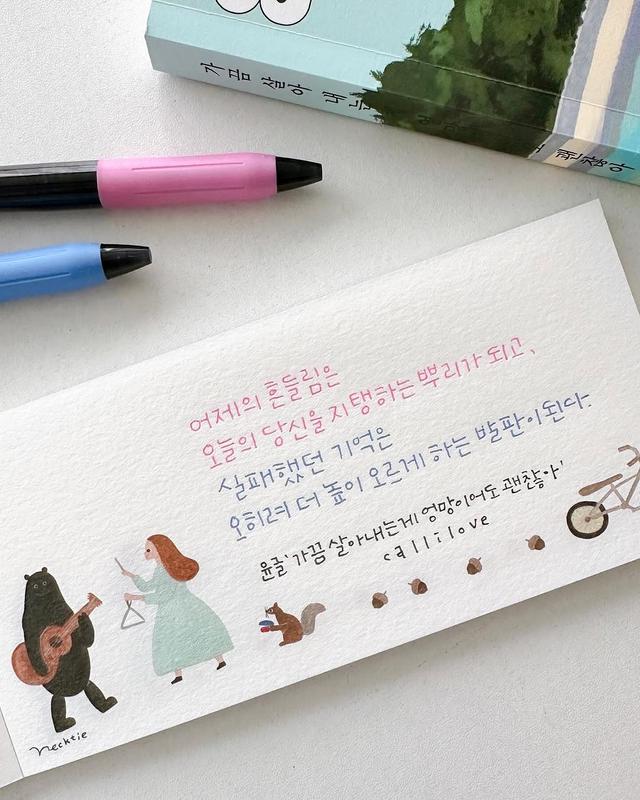 가끔 살아 내는
괜찮아
어제의 흔들림은
오늘의 당신을 지탱하는 뿌리가 되고,
실패했던 기억은
오히려 더 높이 오르게 하는 발판이 된다.
윤글 '가끔 살아내는게 엉망이어도 괜찮아'
callilove
necktie